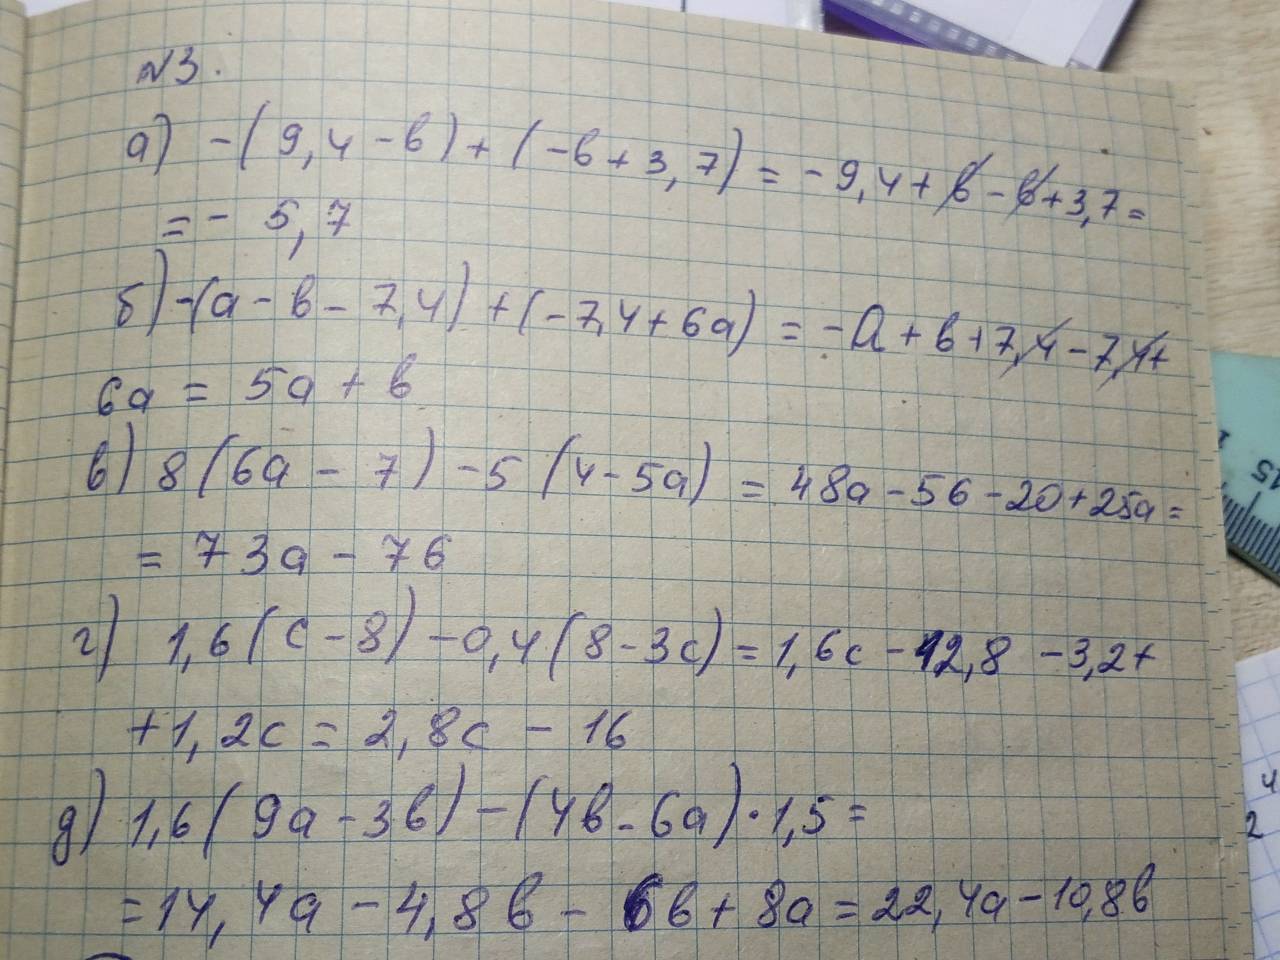 №3.
а) -(9,4-в)+(-в+3,7)=-9,4+в-в+3,7=
=-5,7
б) -(а-в-7,4)+(-7,4+6а)=-а+в+7,4-7,4+
6а=5а+в
в) 8(6а-7)-5(4-5а)=48а-56-20+25а=
=73а-76
г) 1,6(с-8)-0,4(8-3с)=1,6с-12,8-3,2+
+1,2с=2,8с-16
д) 1,6(9а-3в)-(4в-6а)·1,5=
=14,4а-4,8в-6в+8а=22,4а-10,8в
15
4
2